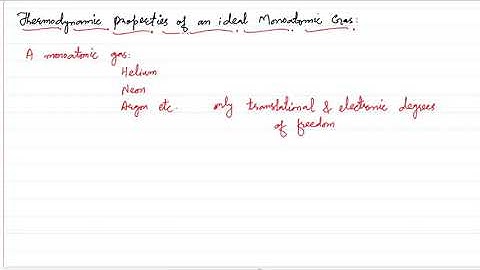 Thermodynamic Properties of an ideal Monoatomic Gas:
A monoatomic gas:
Helium
Neon
Argon etc. only translational & electronic degrees
of freedom